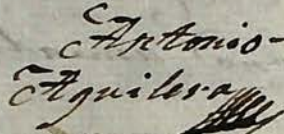 Antonio
Aguilera